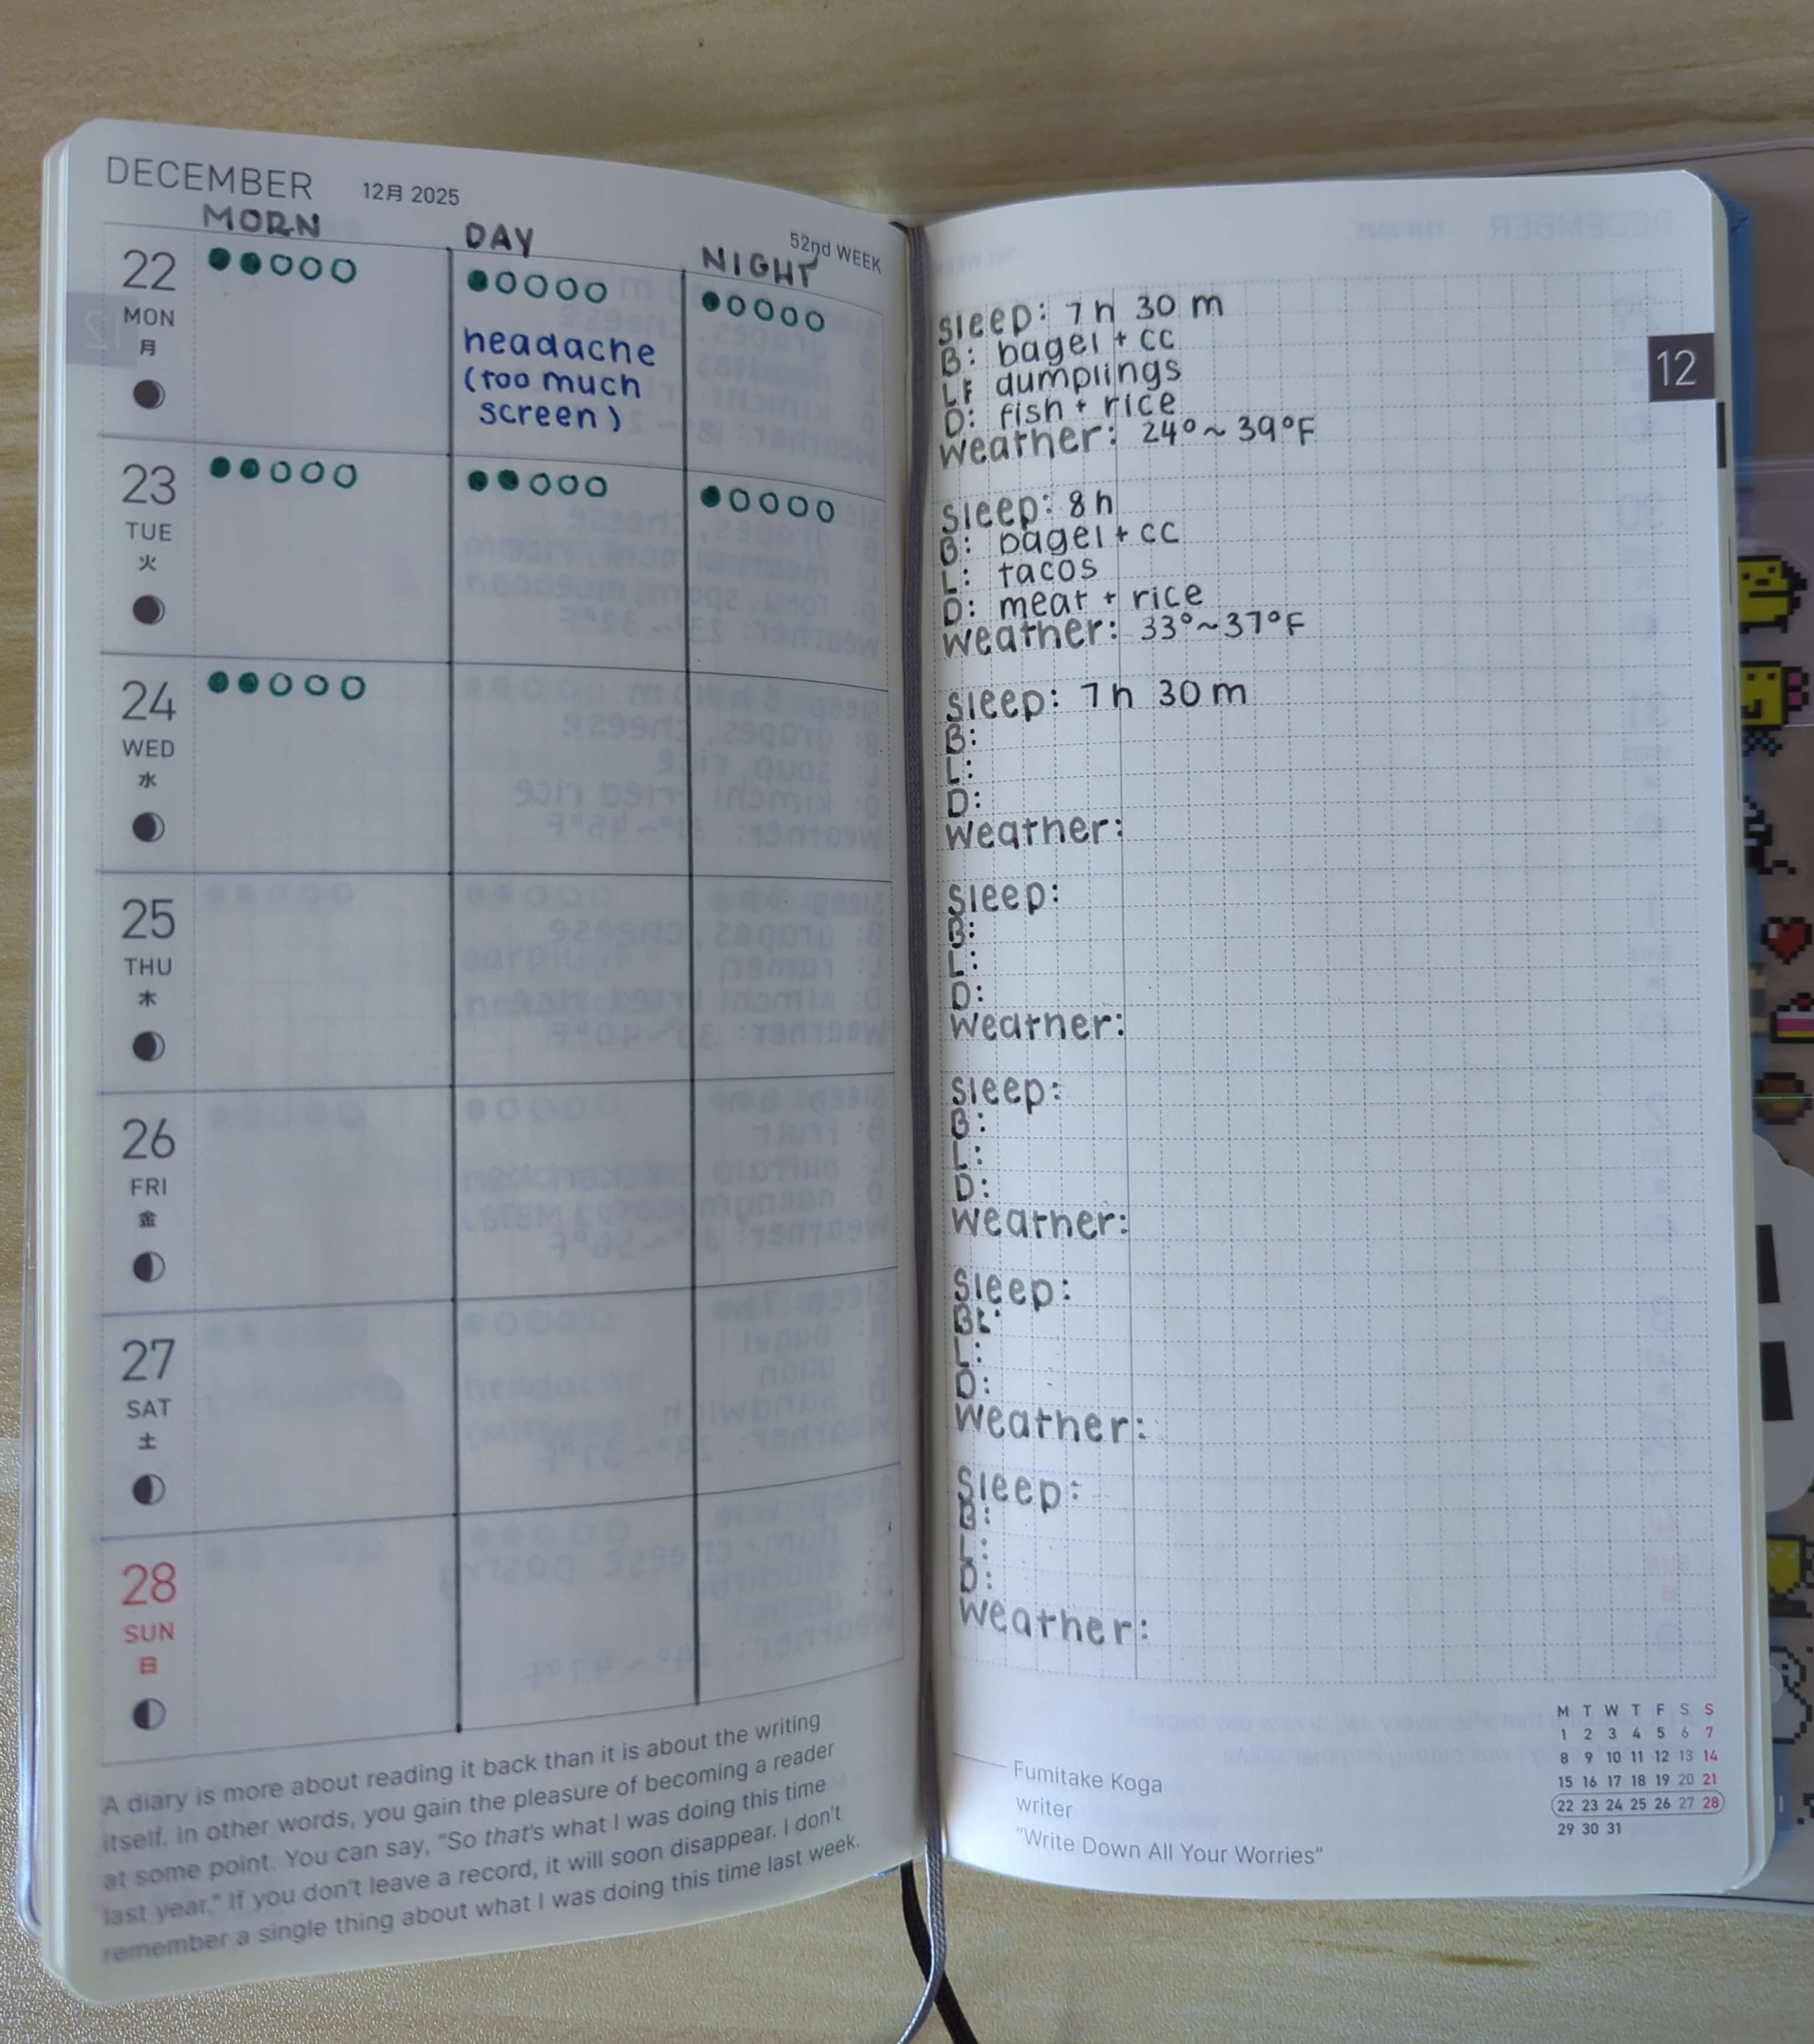 DECEMBER 12月 2025
MORN DAY NIGHT 52nd WEEK
22
MON
月
headache
(too much
screen)
23
TUE
火
24
WED
水
25
THU
木
26
FRI
金
27
SAT
土
28
SUN
日
A diary is more about reading it back than it is about the writing
itself. In other words, you gain the pleasure of becoming a reader
at some point. You can say, "So that's what I was doing this time
last year." If you don't leave a record, it will soon disappear. I don't
remember a single thing about what I was doing this time last week.
12
sleep: 7h 30m
B: bagel + cc
L: dumplings
D: fish + rice
weather: 24°~39°F
sleep: 8h
B: bagel + cc
L: tacos
D: meat + rice
weather: 33°~37°F
sleep: 7h 30m
B:
L:
D:
weather:
sleep:
B:
L:
D:
weather:
sleep:
B:
L:
D:
weather:
sleep:
B:
L:
D:
weather:
sleep:
B:
L:
D:
weather:
Fumitake Koga
writer
"Write Down All Your Worries"
M T W T F S S
1 2 3 4 5 6 7
8 9 10 11 12 13 14
15 16 17 18 19 20 21
22 23 24 25 26 27 28
29 30 31